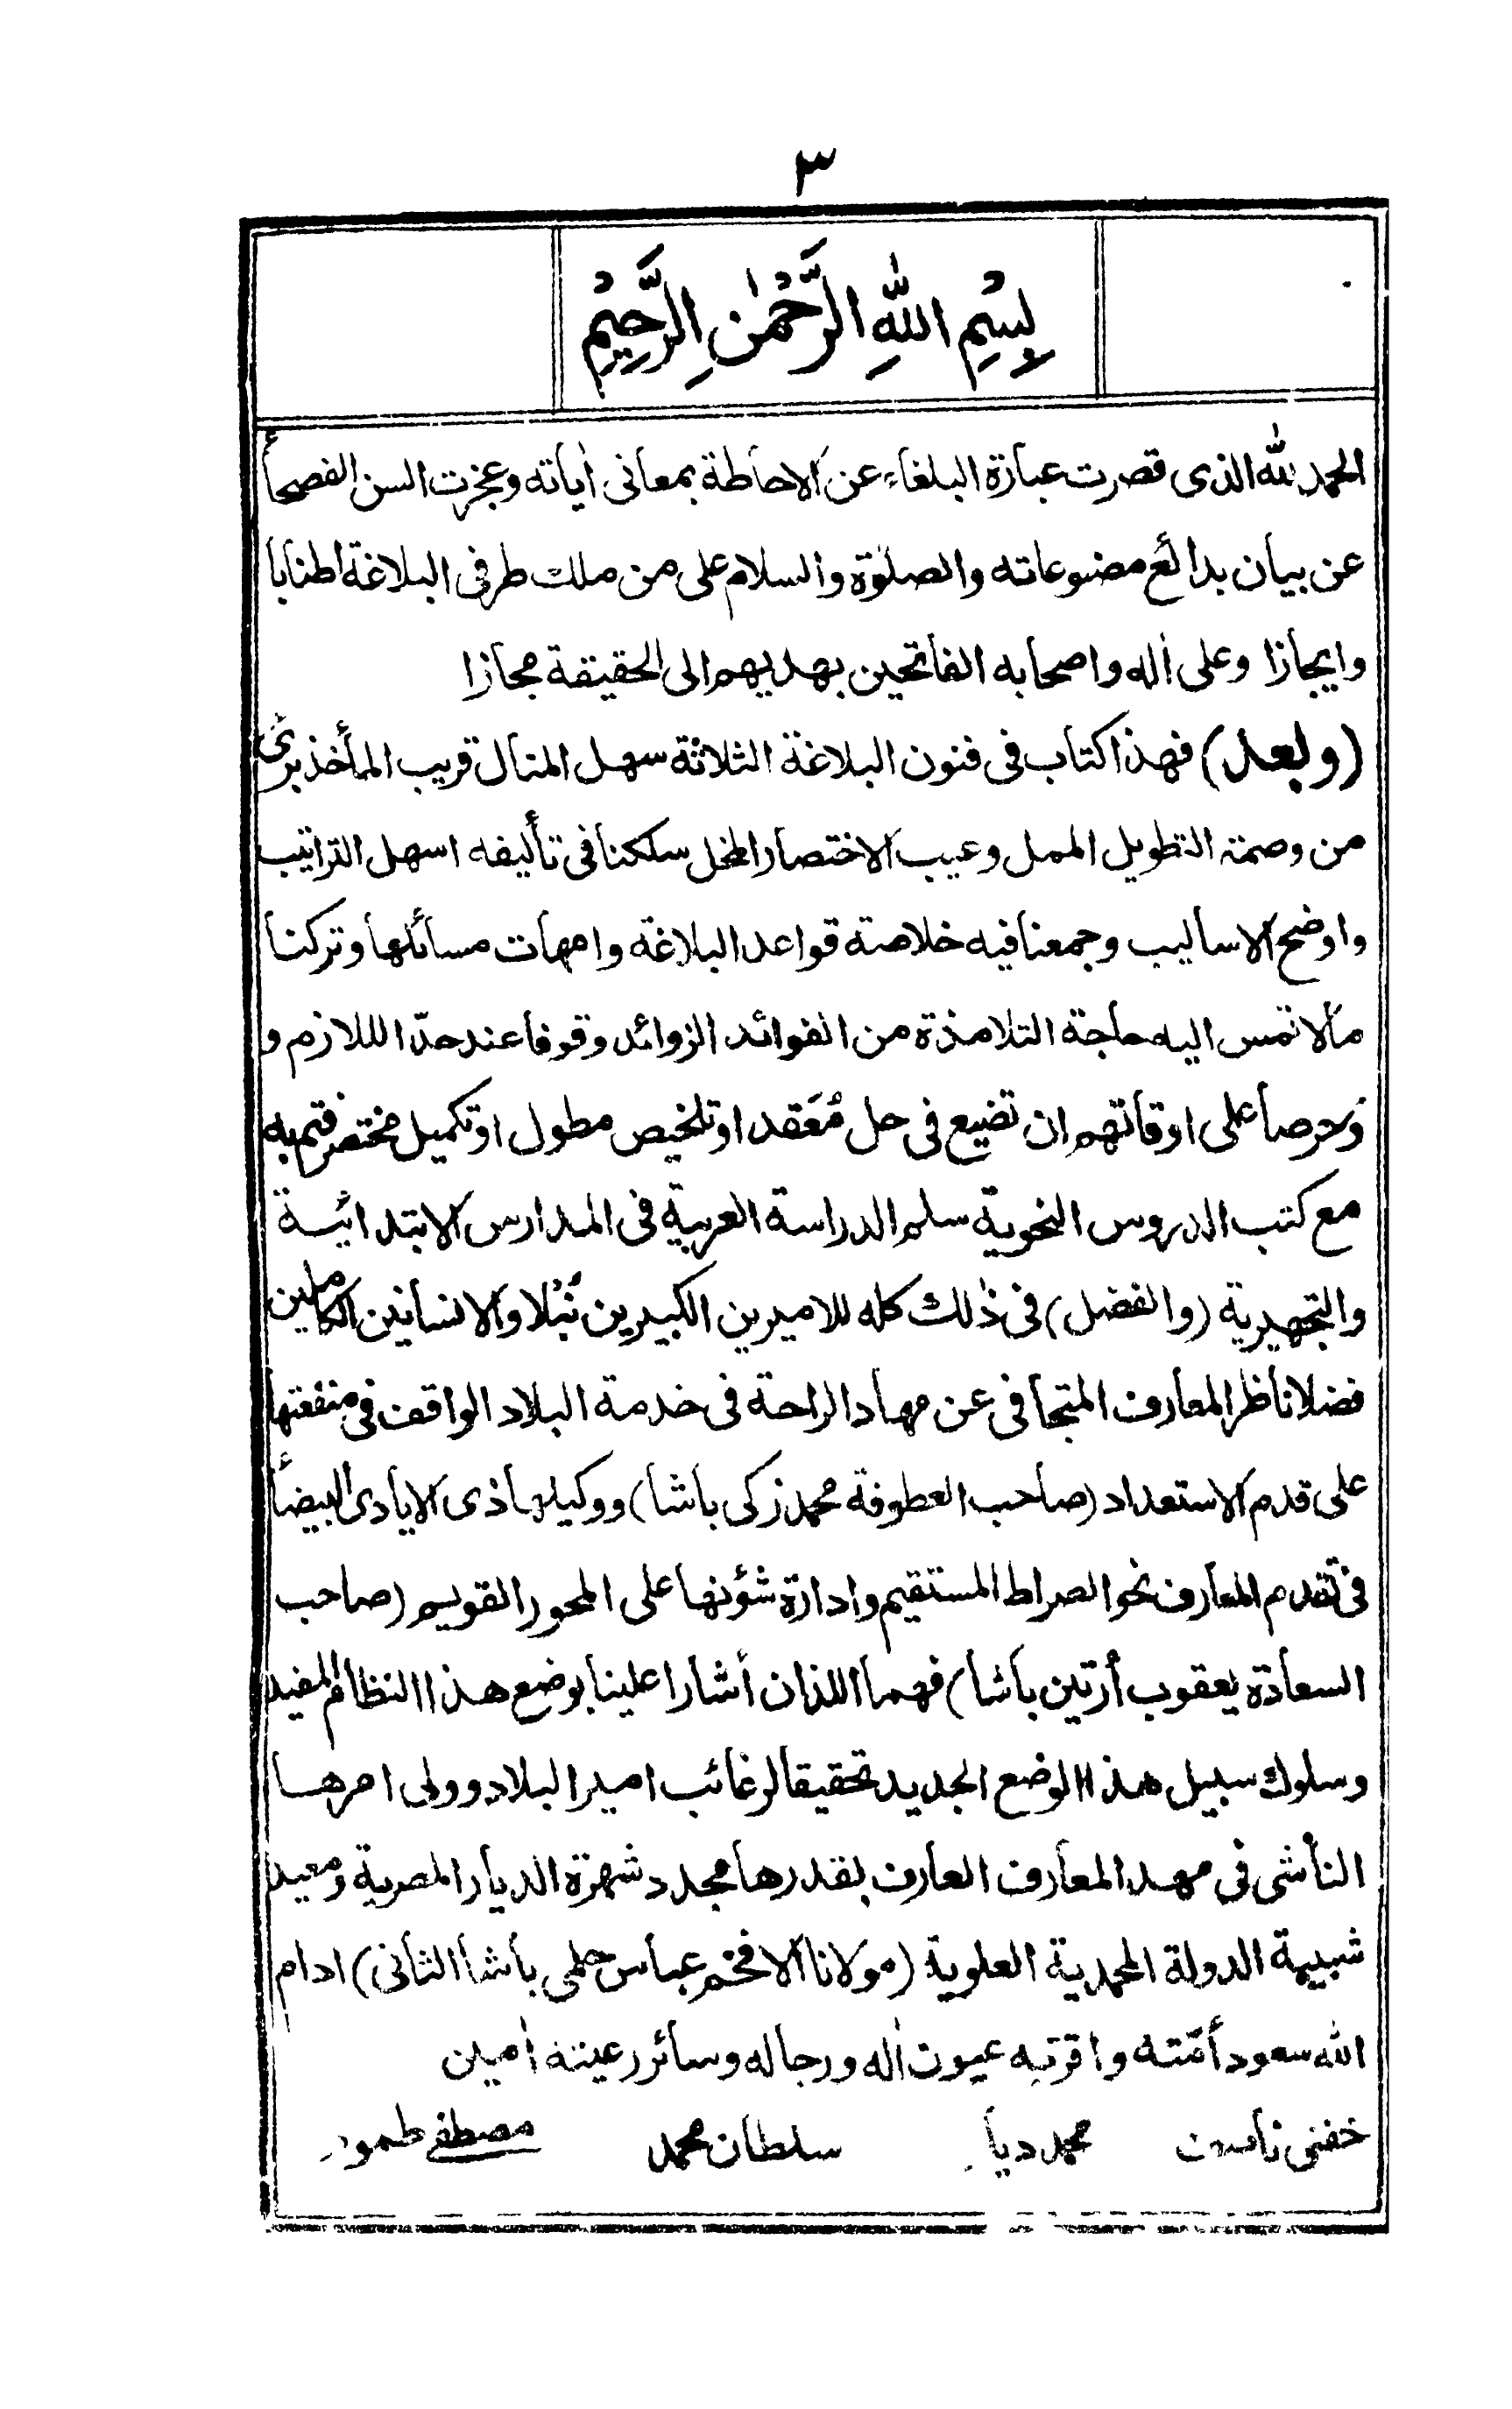 ٣
بِسْمِ اللّٰهِ الرَّحْمٰنِ الرَّحِيْمِ
الحمد للّٰه الذى قصرت عبارة البلغاء عن الاحاطة بمعانى أياته وعجزت السن الفصحأ
عن بيان بدائع مضوعاته والصلوٰة والسلام على من ملك طرفى البلاغة اطنابا
وايجازا وعلى اٰله واصحابه الفاتحين بهديهم الى الحقيقة مجازا
(وبعد) فهذا كتاب فى فنون البلاغة الثلاثة سهل المنال قريب المأخذ برئ
من وصمة التطويل الممل وعيب الاختصار المخل سلكنا فى تأليفه اسهل التراتيب
واوضح الاساليب وجمعنا فيه خلاصة قواعد البلاغة وامهات مسائلها وتركنا
مالا تمس اليه حاجة التلامذة من الفوائد الزوائد وقوفا عند حدّ الللازم و
وحرصا على اوقاتهم ان تضيع فى حل مُعَقد او تلخيص مطول او تكميل مختصر فتم به
مع كتب الدروس النحوية سلم الدراسة العربية فى المدارس الابتدائية
والتجهيرية (والفضل) فى ذٰلك كله للاميرين الكبيرين نُبْلا والانسانين الكاملين
فضلا ناظر المعارف المتجافى عن مهاد الراحة فى خدمة البلاد الواقف فى منفعتها
على قدم الاستعداد (صاحب العطوفة محمد زكى باشا) ووكيلها ذى الايادى البيضأ
فى تقدم المعارف نحو الصراط المستقيم وادارة شؤنها على المحور القويم (صاحب
السعادة يعقوب أرتين باشا) فهما اللذان أشارا علينا بوضع هذا النظام المفيد
وسلوك سبيل هذا الوضع الجديد تحقيقا لرغائب امير البلاد وولى امرها
الناشى فى مهد المعارف العارف بقدرها مجدد شهرة الديار المصرية ومعيد
شبيبة الدولة المحمدية العلوية (مولانا الافخم عباس حلمى باشا الثانى) ادام
اللّٰه سعود أمّته واقر به عيون اٰله ورجاله وسائر رعيته اٰمين
حفنى ناصف محمد دياب سلطان محمد مصطفى طموم